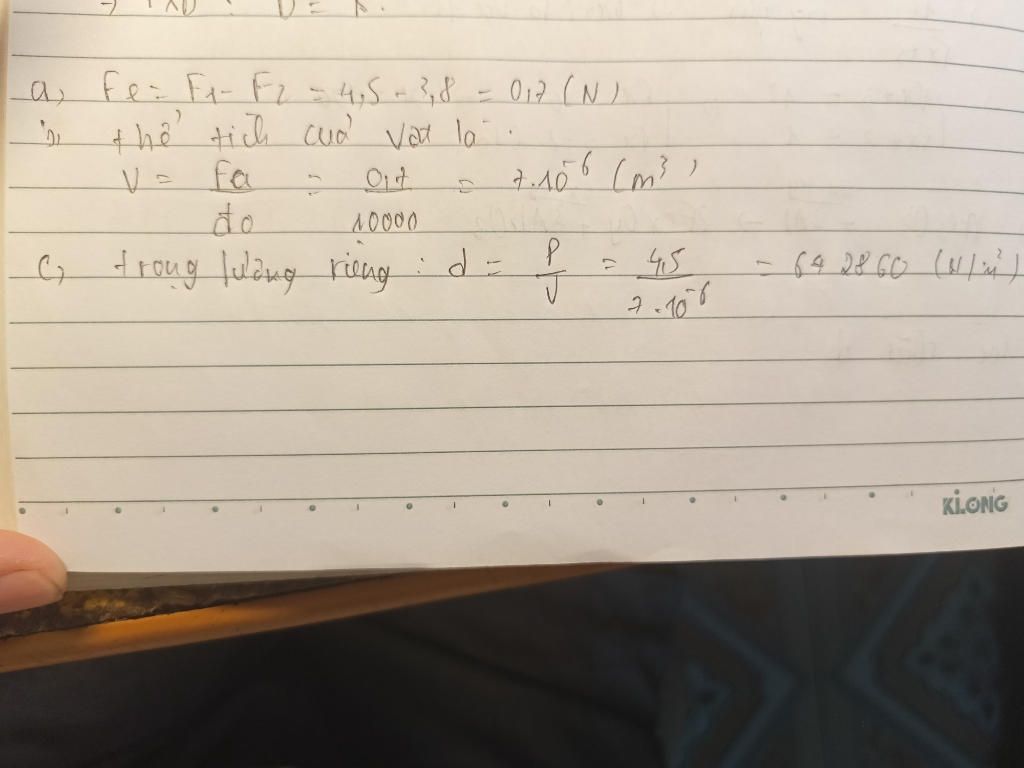 a, Fe = F1 - F2 = 4,5 - 3,8 = 0,7 (N)
b, thể tích của vật là:
V = Fa/do = 0,7/10000 = 7.10^-6 (m^3)
c, trọng lượng riêng : d = P/V = 4,5/7.10^-6 = 642860 (N/m^3)
KiLONG